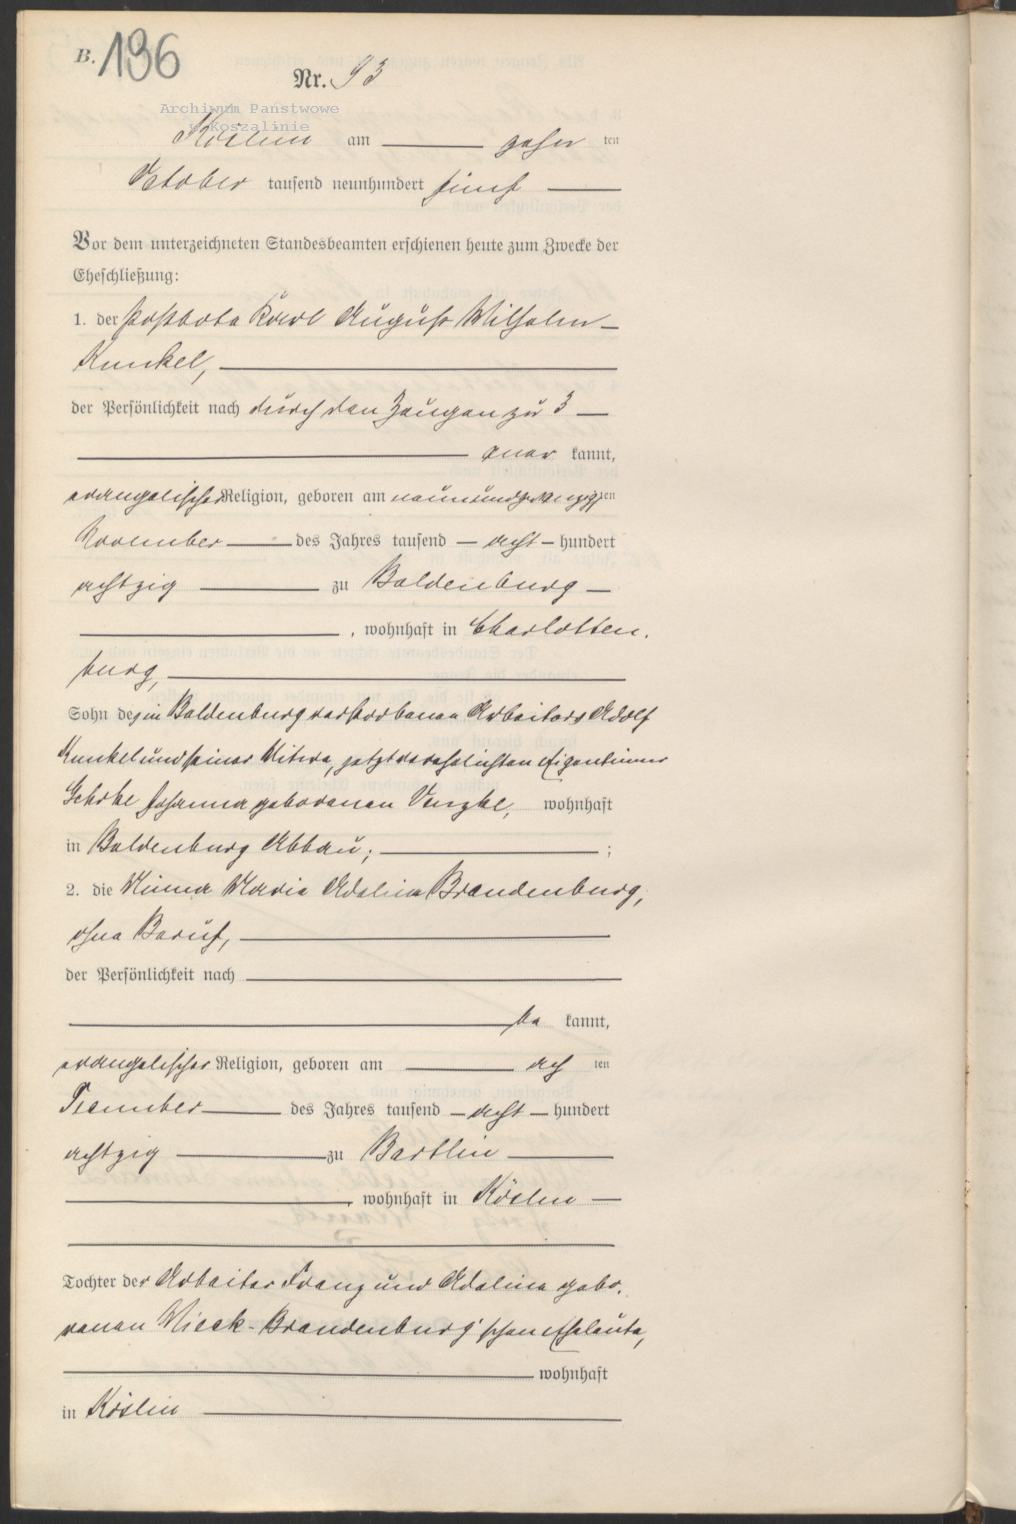 B. 136
Nr. 93
Archiwum Państwowe
w Koszalinie
Köslin am zehn ten
October tausend neunhundert fünf
Vor dem unterzeichneten Standesbeamten erschienen heute zum Zwecke der
Eheschließung:
1. der Postbote Karl August Wilhelm
Kunkel,
der Persönlichkeit nach durch den Zeugen zu 3
aner kannt,
evangelischer Religion, geboren am neunundzwanzigsten
November des Jahres tausend acht hundert
achtzig zu Baldenburg
, wohnhaft in Charlotten-
burg,
Sohn des in Baldenburg verstorbenen Arbeiters Adolf
Kunkel und seiner Witwe, jetzt verehelichten Eigentümer
Johanna geborenen Venzke, wohnhaft
in Baldenburg Abbau; ;
2. die Minna Maria Adeline Brandenburg,
ohne Beruf,
der Persönlichkeit nach
be kannt,
evangelischer Religion, geboren am ach ten
des Jahres tausend acht hundert
achtzig zu Bartlin
, wohnhaft in Köslin
Tochter der Arbeiter Franz und Adeline gebo-
renen Wieck-Brandenburg'schen Eheleute,
wohnhaft
in Köslin